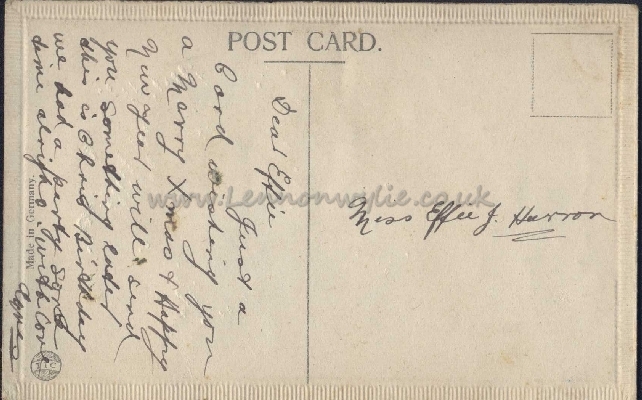 POST CARD.
Dear Effie
Just a
Card wishing you
a Merry Xmas & Happy
New year will send
you something later
this is Birthday
we had a party
time alright with love
Miss Effie J. Harron
Made in Germany.
www.Lennonwylie.co.uk